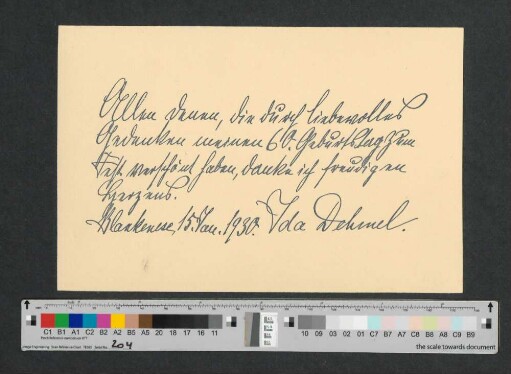 Allen denen, die durch liebevolles
Gedenken meinen 60. Geburtstag zum
Fest verschönt haben, danke ich freudigen
Herzens.
Blankenese, 15. Jan. 1930. Ida Dehmel.
C1 B1 A1 C2 B2 A2 B5 A5 20 18 17 16 11
10 09 03 02 01 C7 B7 A7 C8 B8 A8 C9 B9
204
the scale towards document